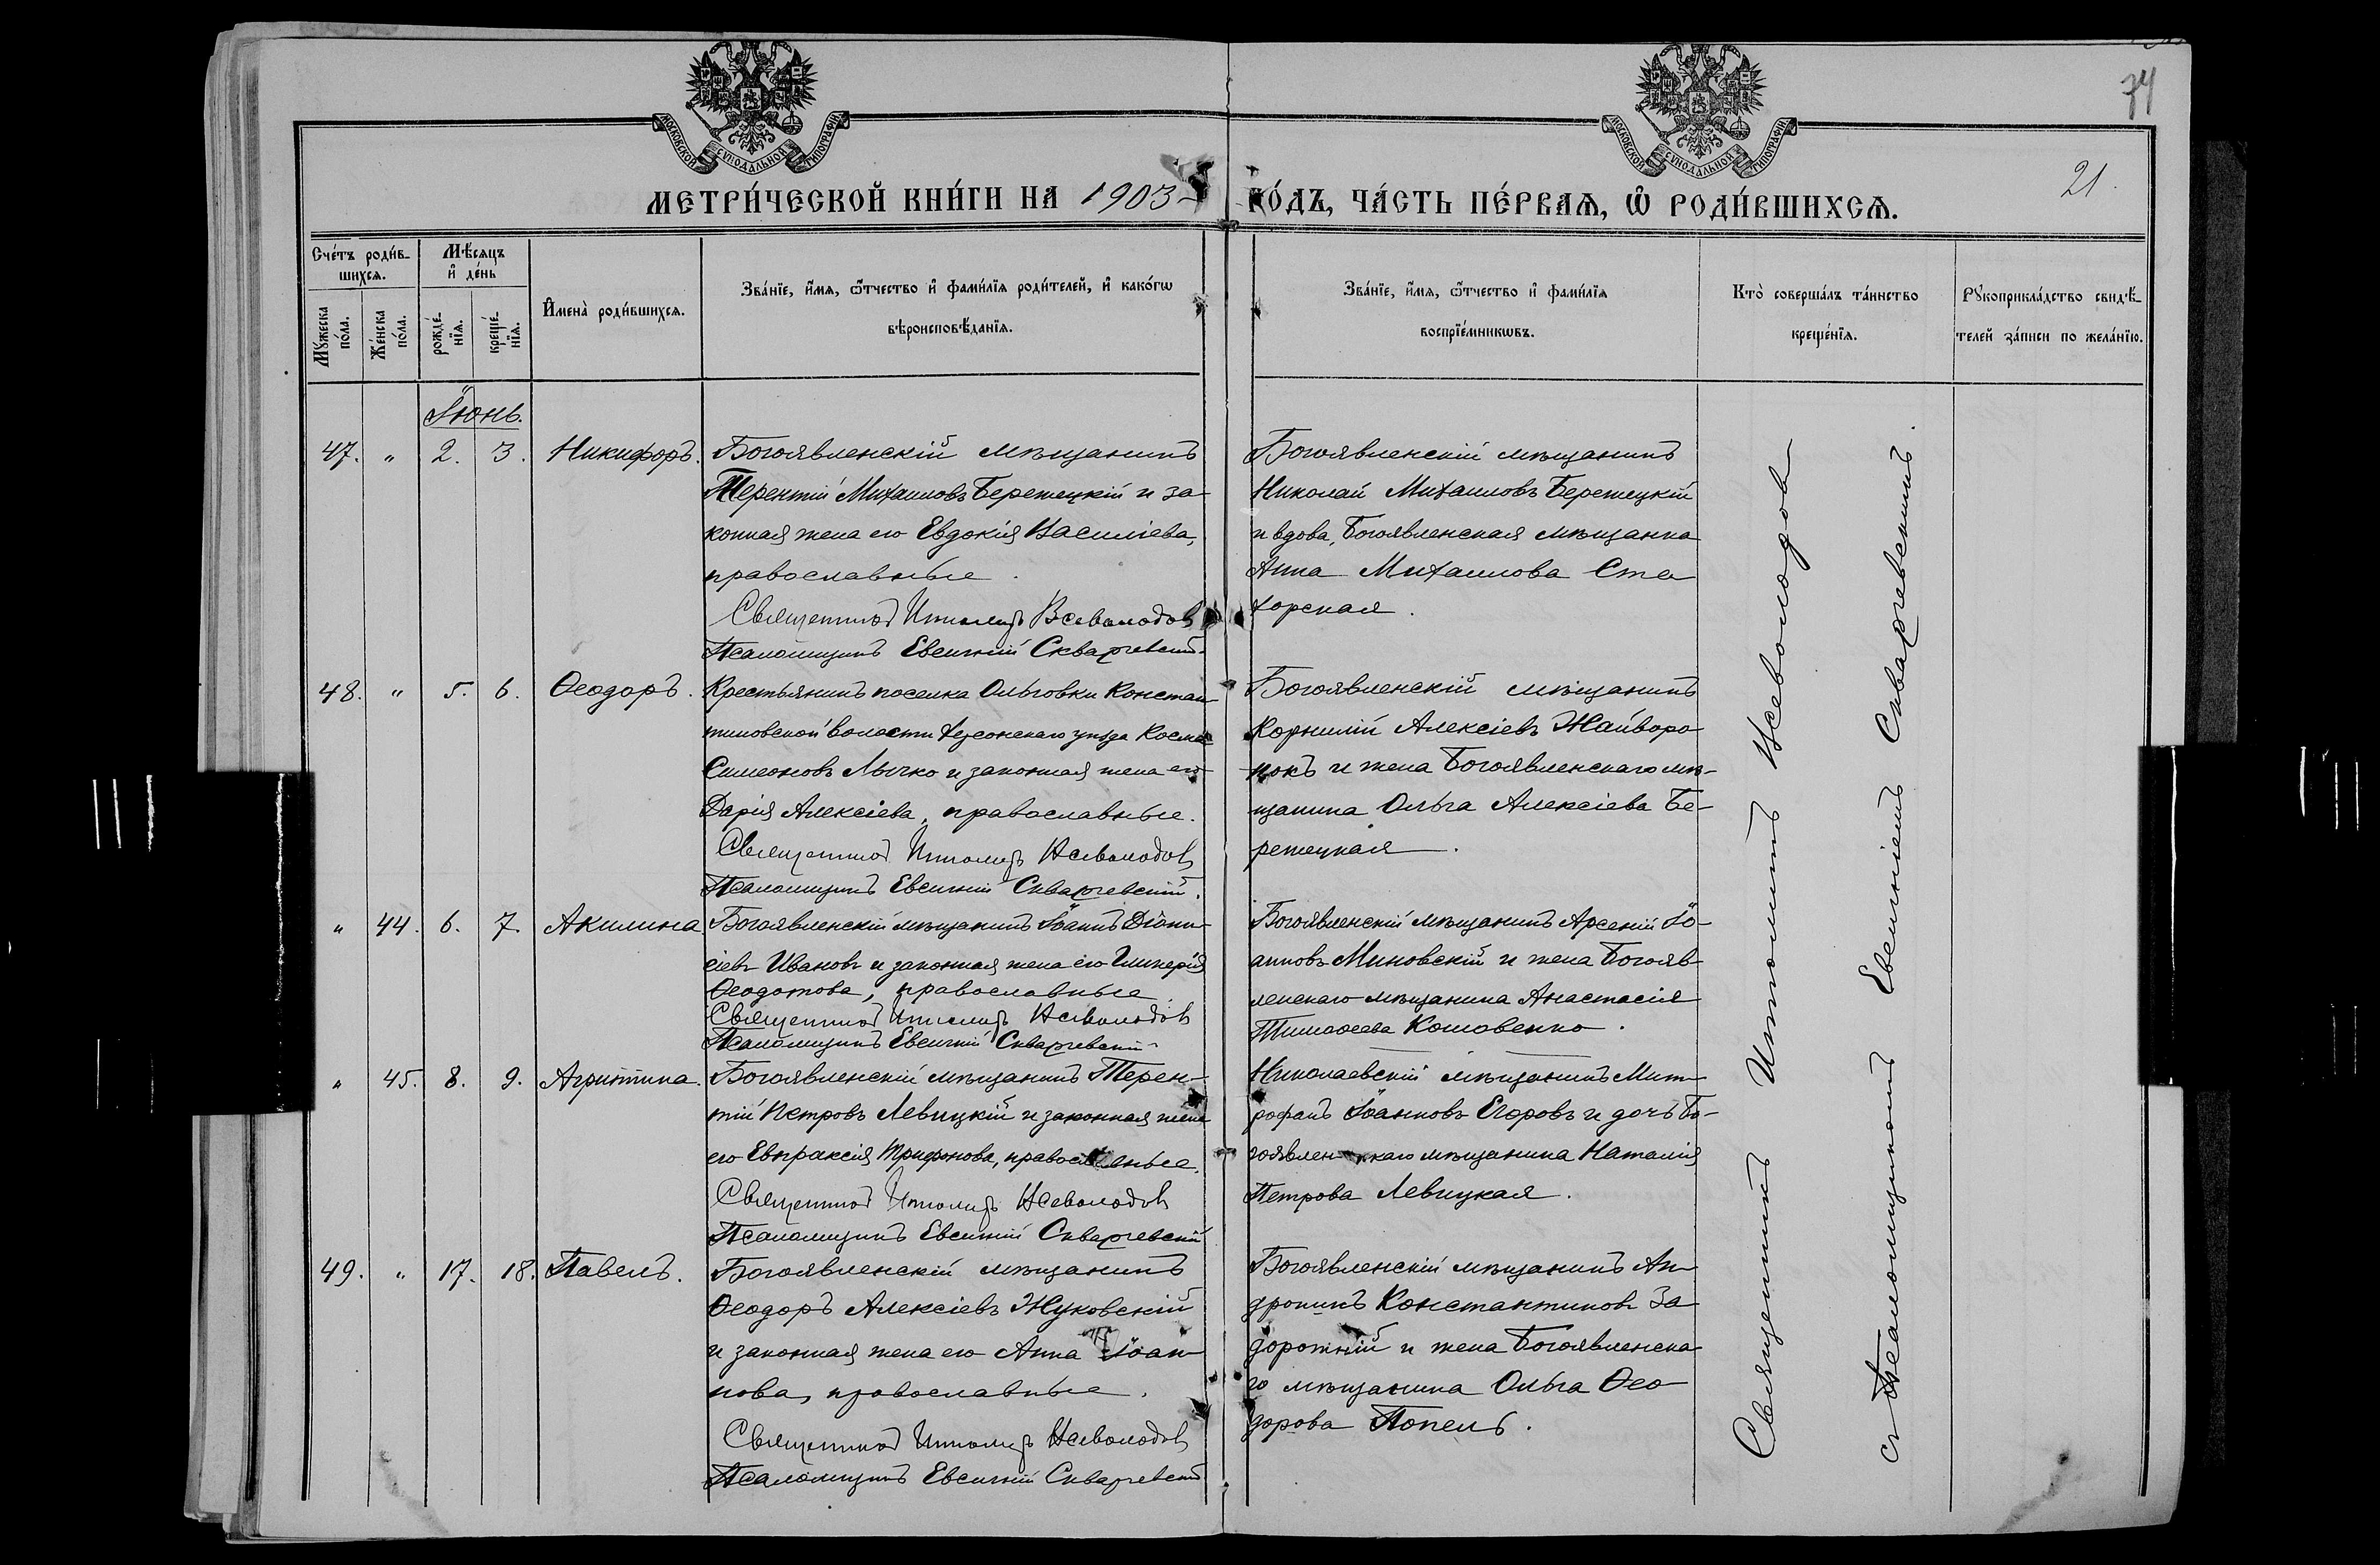 74
21.
МОСКОВСКОЙ СѴНОДАЛЬНОЙ ТИПОГРАФІИ
МОСКОВСКОЙ СѴНОДАЛЬНОЙ ТИПОГРАФІИ
МЕТРИ́ЧЕСКОЙ КНИ́ГИ НА 1903 ГО́ДЪ, ЧА́СТЬ ПЕ́РВАѦ, Ѽ РОДИ́ВШИХСѦ.
Сче́тъ роди́в-
шихсѧ.
Мꙋ́жеска по́ла.
Же́нска по́ла.
Мѣ́сѧцъ
и҆ де́нь
рожде́-
нїѧ.
креще́-
нїѧ.
И҆мена̀ роди́вшихсѧ.
Зва́нїе, и҆́мѧ, ѻ҆́тчество и҆ фами́лїѧ роди́телей, и҆ како́гѡ
вѣроисповѣ́данїѧ.
Зва́нїе, и҆́мѧ, ѻ҆́тчество и҆ фами́лїѧ
воспрїе́мникѡвъ.
Кто̀ соверша́лъ та́инство
креще́нїѧ.
Рꙋкоприкла́дство свидѣ́-
телей за́писи по жела́нїю.
Іюнь.
47. " 2. 3. Никифоръ.
Богоявленскій мѣщанинъ
Терентій Михаиловъ Бережецкій и за-
конная жена его Евдокія Василіева,
православные.
Священникъ Ипполитъ Всеволодовъ
Псаломщикъ Евсигній Скваржевскій
Богоявленскій мѣщанинъ
Николай Михаиловъ Бережецкій
и вдова, Богоявленская мѣщанка
Анна Михаилова Ста
хорская.
48. " 5. 6. Ѳеодоръ.
Крестьянинъ поселка Ольговки Констан
тиновской волости Херсонскаго уѣзда Косма
Симеоновъ Лычко и законная жена его
Дарія Алексіева, православные.
Священникъ Ипполитъ Всеволодовъ
Псаломщикъ Евсигній Скваржевскій.
Богоявленскій мѣщанинъ
Корнилій Алексіевъ Жайворо
нокъ и жена Богоявленскаго мѣ-
щанина Ольга Алексіева Бе-
режецкая.
" 44. 6. 7. Акилина
Богоявленскій мѣщанинъ Іоаннъ Діони-
сіевъ Ивановъ и законная жена его Гликерія
Ѳеодотова, православные
Священникъ Ипполитъ Всеволодовъ
Псаломщикъ Евсигній Скваржевскій
Богоявленскій мѣщанинъ Арсеній Іо-
анновъ Миновскій и жена Богояв-
ленскаго мѣщанина Анастасія
Тимоѳеева Кошовенко.
" 45. 8. 9. Агриппина.
Богоявленскій мѣщанинъ Терен-
тій Петровъ Левицкій и законная жена
его Евпраксія Трифонова, православные.
Священникъ Ипполитъ Всеволодовъ
Псаломщикъ Евсигній Скваржевскій
Николаевскій мѣщанинъ Мит-
рофанъ Іоанновъ Егоровъ и дочь Бо-
гоявленскаго мѣщанина Наталія
Петрова Левицкая.
49. " 17. 18. Павелъ.
Богоявленскій мѣщанинъ
Ѳеодоръ Алексіевъ Жуковскій
и законная жена его Анна Іоан-
нова, православные.
Священникъ Ипполитъ Всеволодовъ
Псаломщикъ Евсигній Скваржевскій
Богоявленскій мѣщанинъ Ан
дроникъ Константиновъ За
дорожній и жена Богоявленска
го мѣщанина Ольга Ѳео
дорова Попель.
Священникъ Ипполитъ Всеволодовъ
съ Псаломщикомъ Евсигніемъ Скваржевскимъ.